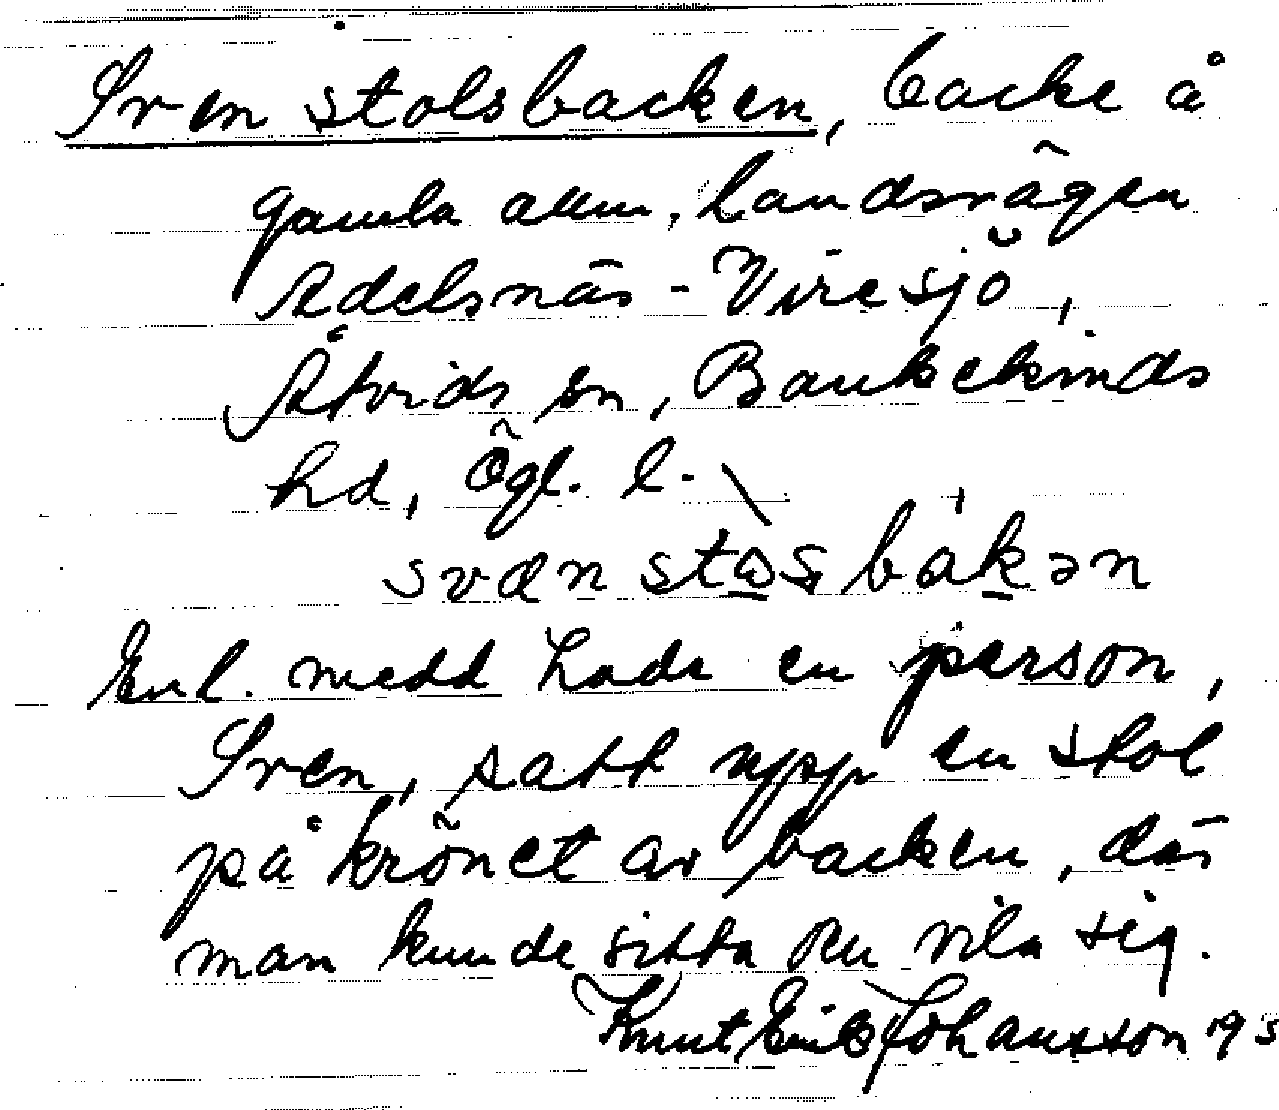 Sven stolsbacken, backe å
gamla allm. landsvägen
Adelsnäs - Viresjö,
Åtvids sn, Bankekinds
hd, Ögl. l.
svæn stωs bakən
Enl. medd hade en person,
Sven, satt upp en stol
på krönet av backen, där
man kunde sitta o. vila sig.
Knut Erik Johansson 19